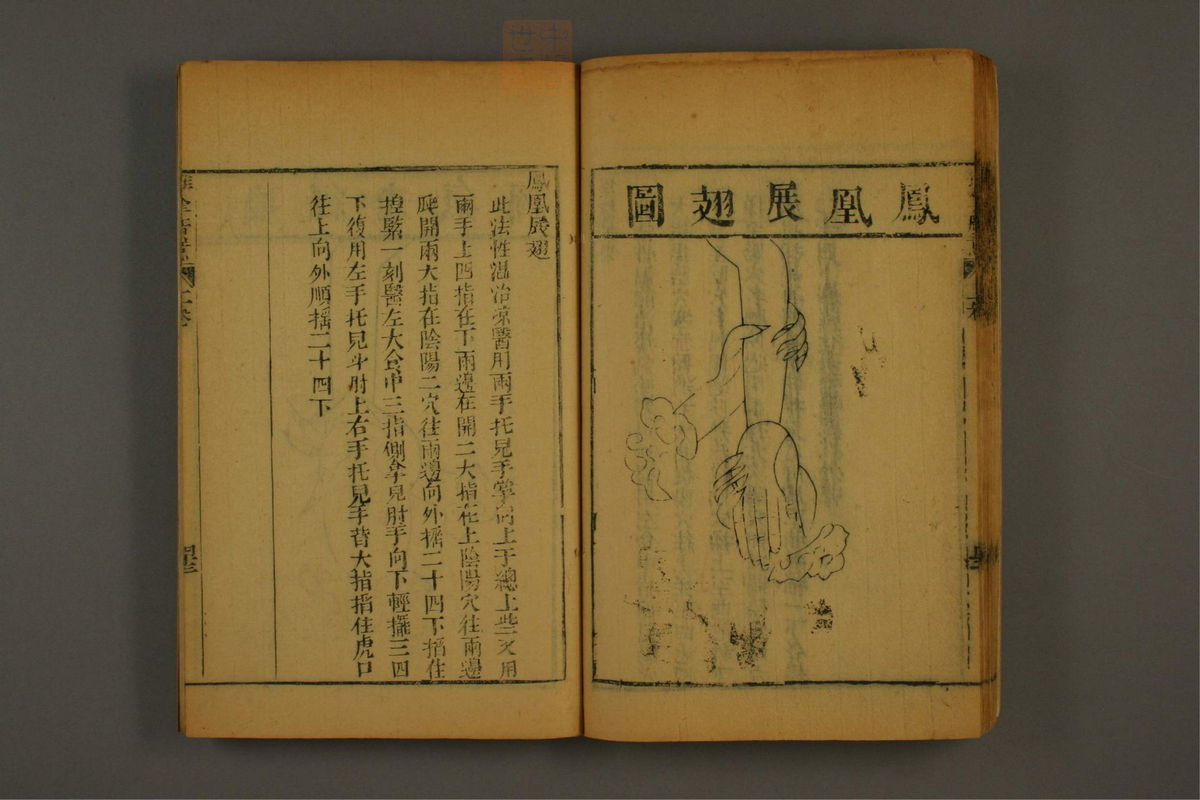 鳳凰展翅圖
鳳凰展翅
此法性溫治凉醫用兩手托兒手掌向上于總上些又用
兩手上四指在下兩邊在開二大指在上陰陽穴往兩邊
爬開兩大指在陰陽二穴往兩邊向外搖二十四下掐住
捏緊一刻醫左大食中三指側拿兒肘手向下輕擺三四
下復用左手托兒斗肘上右手托兒手背大指掐住虎口
往上向外順搖二十四下